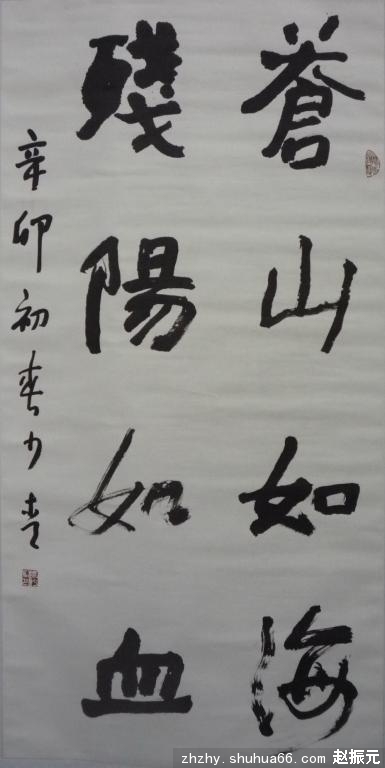 蒼山如海
殘陽如血
辛卯初春少
zhzhy.shuhua66.com 赵振元